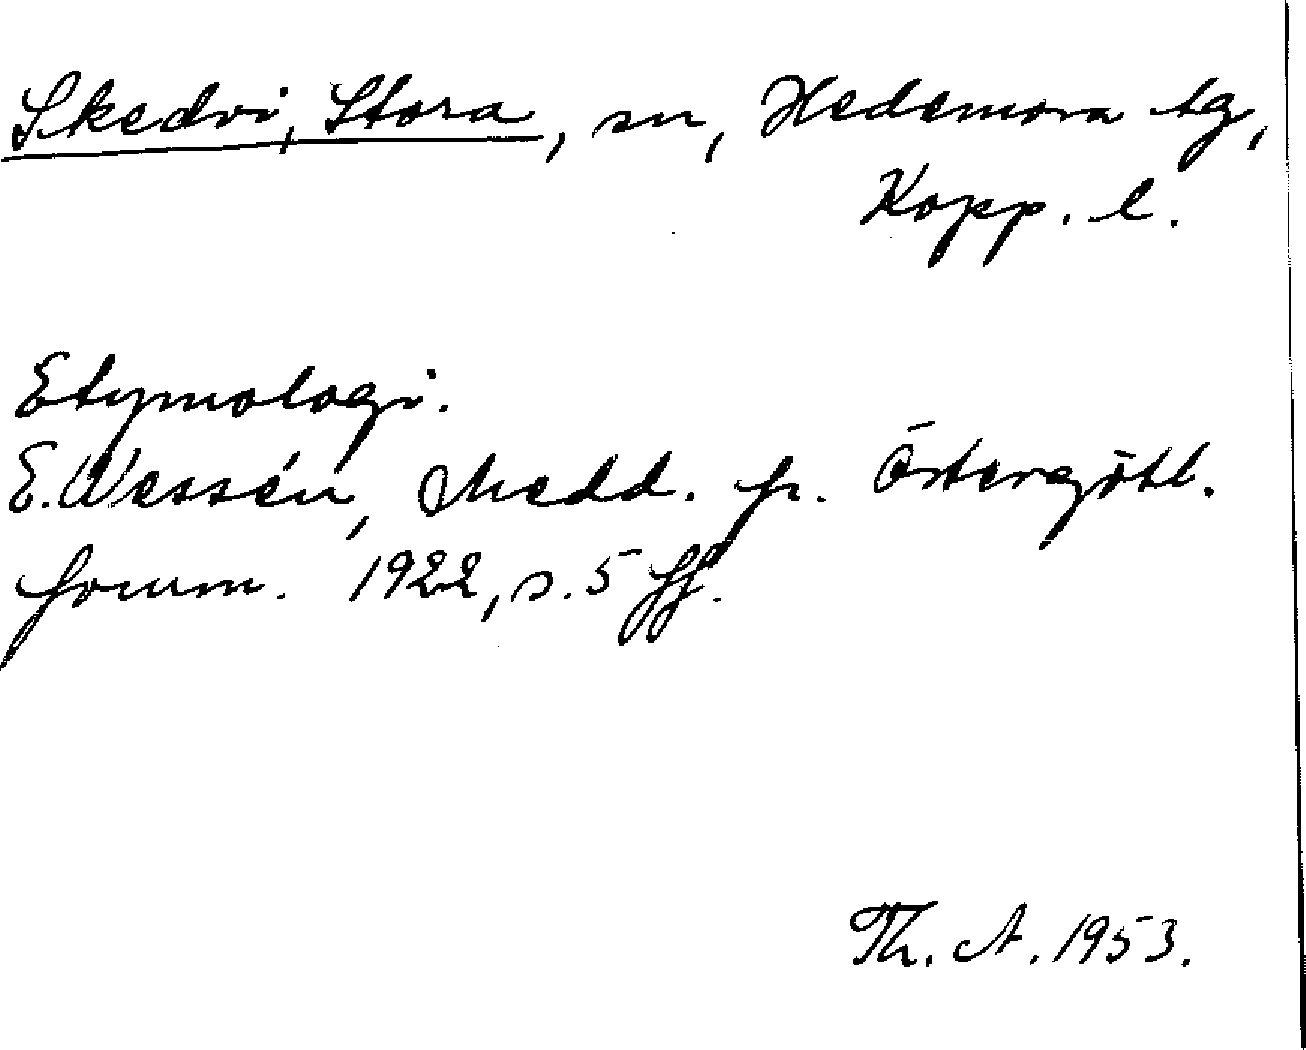 Skedvi, Stora, sn, Hedemora tg,
Kopp. l.
Etymologi.
E. Wessén, Medd. fr. Östergötl.
fornm. 1922, s. 5 ff.
Th. A. 1953.